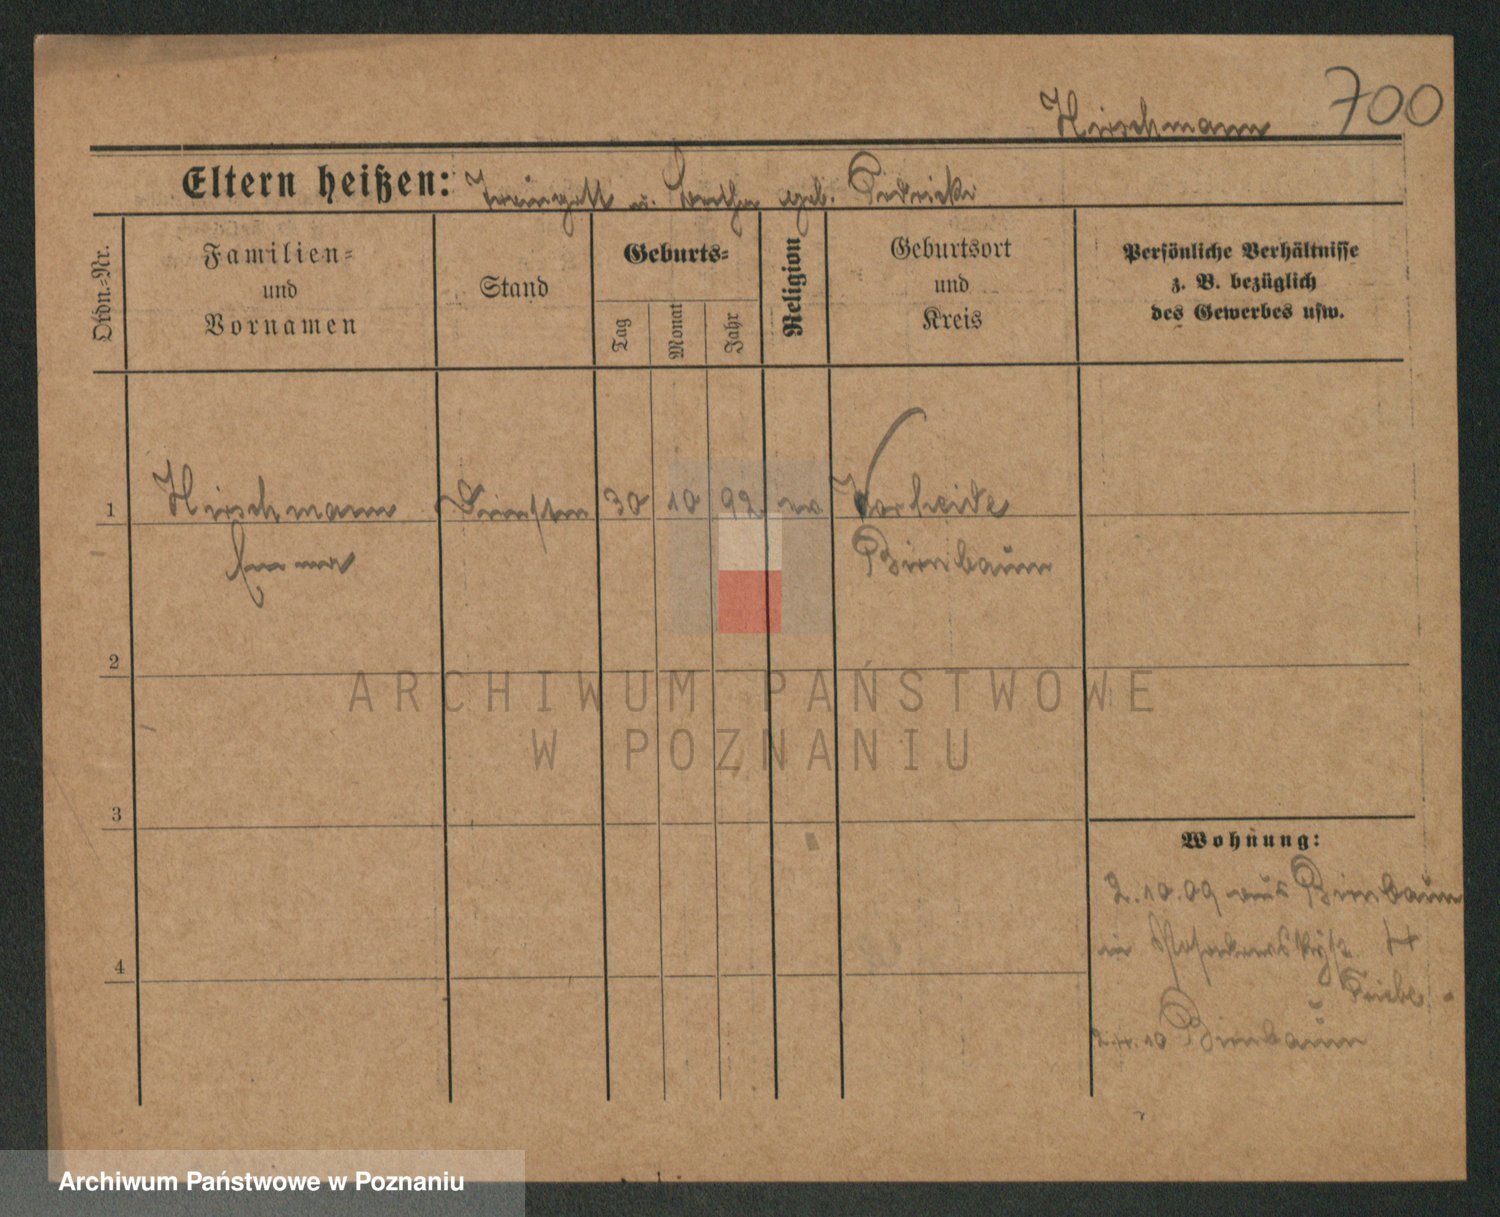 Hirschmann 700
Eltern heißen: Traugott u. Bertha geb.
Ordn.-Nr.
Familien-
und
Vornamen
Stand
Geburts-
Tag
Monat
Jahr
Religion
Geburtsort
und
Kreis
Persönliche Verhältnisse
z. B. bezüglich
des Gewerbes usw.
1 Hirschmann 30 10 92 ev Vorheide
Emma Birnbaum
2
3
4
Wohnung:
2.10.09 aus Birnbaum
in
10 Birnbaum
ARCHIWUM PAŃSTWOWE
W POZNANIU
Archiwum Państwowe w Poznaniu